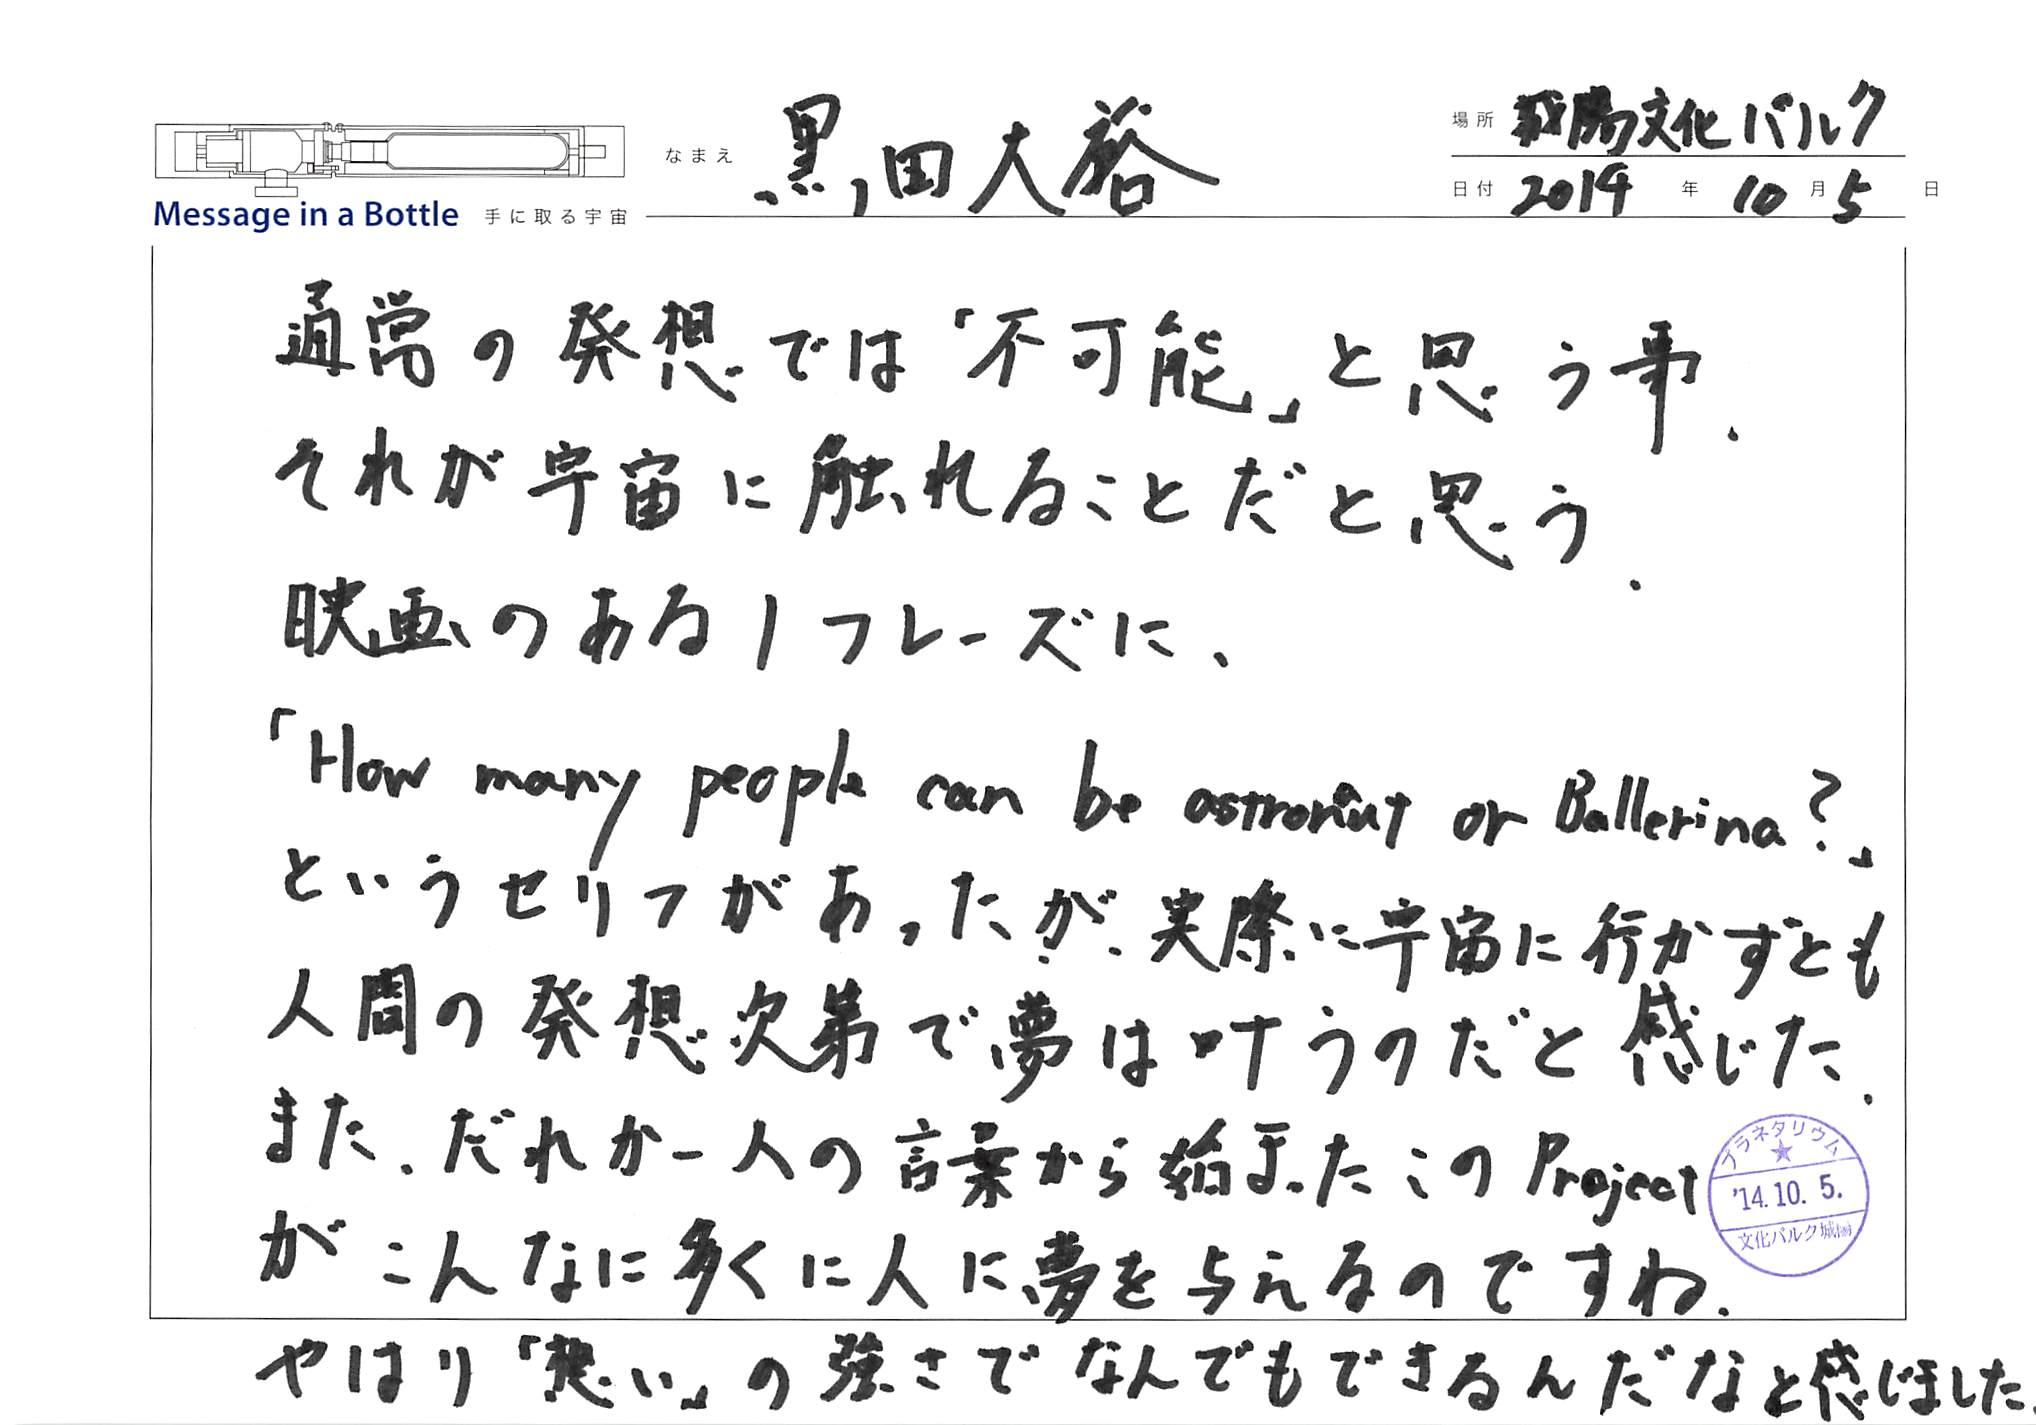 なまえ 黒田大裕
場所 城陽文化パルク
日付 2014 年 10 月 5 日
Message in a Bottle 手に取る宇宙
通常の発想では「不可能」と思う事.
それが宇宙に触れることだと思う.
映画のある1フレーズに、
「How many people can be astronaut or Ballerina?」
というセリフがあったが、実際に宇宙に行かずとも
人間の発想次第で夢は叶うのだと感じた.
また、だれか一人の言葉から始まったこのProject
がこんなに多くに人に夢を与えるのですね.
やはり「想い」の強さでなんでもできるんだなと感じました.
プラネタリウム
'14.10.5.
文化パルク城陽